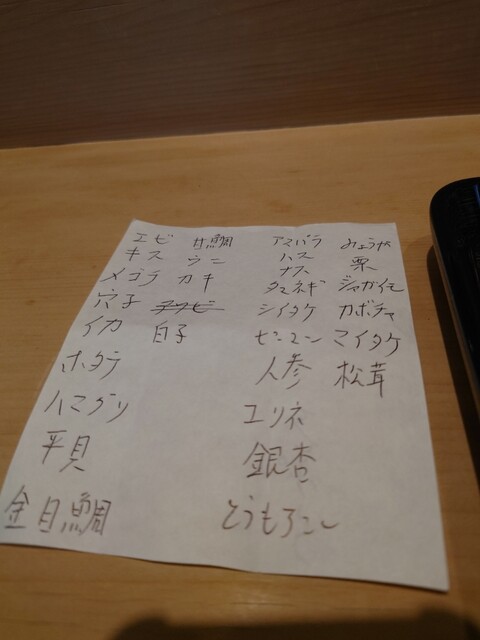 エビ
キス
メゴチ
穴子
イカ
ホタテ
ハマグリ
平貝
金目鯛
甘鯛
ウニ
カキ
白子
アスパラ
ハス
ナス
タマネギ
シイタケ
ピーマン
人参
ユリネ
銀杏
とうもろこし
みょうが
栗
ジャガイモ
カボチャ
マイタケ
松茸